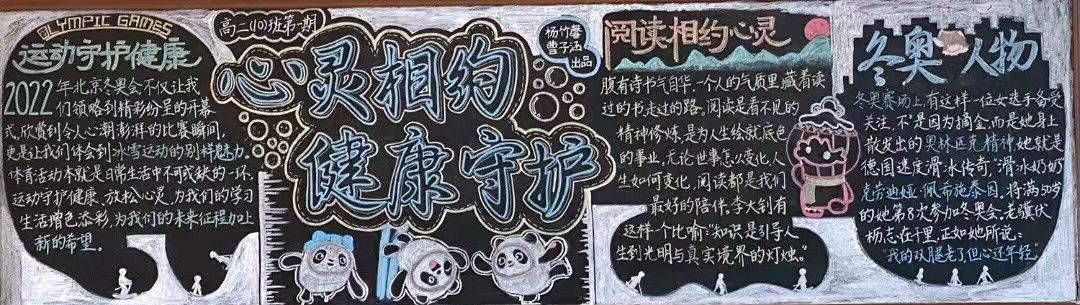 OLYMPIC GAMES
运动守护健康
2022年北京冬奥会不仅让我
们领略到精彩纷呈的开幕
式,欣赏到令人心潮澎湃的比赛瞬间,
更是让我们体会到冰雪运动的别样魅力。
体育活动本就是日常生活中不可或缺的一环,
运动守护健康、放松心灵,为我们的学习
生活增色添彩,为我们的未来征程加上
新的希望。
高二(10)班第一期
心灵相约
健康守护
杨竹馨
曹子涵
出品
阅读相约心灵
腹有诗书气自华,一个人的气质里,藏着读
过的书走过的路。阅读是看不见的
精神修炼,是为人生绘就底色
的事业,无论世事怎么变化,人
生如何变化,阅读都是我们
最好的陪伴。李大钊有
这样一个比喻:“知识是引导人
生到光明与真实境界的灯烛。”
冬奥人物
冬奥赛场上,有这样一位女选手备受
关注,不是因为摘金而是她身上
散发出的奥林匹克精神,她就是
德国速度滑冰传奇“滑冰奶奶”
克劳迪娅·佩希施泰因,将满50岁
的她第8次参加冬奥会,老骥伏
枥志在千里,正如她所说:
“我的双腿老了但心还年轻。”